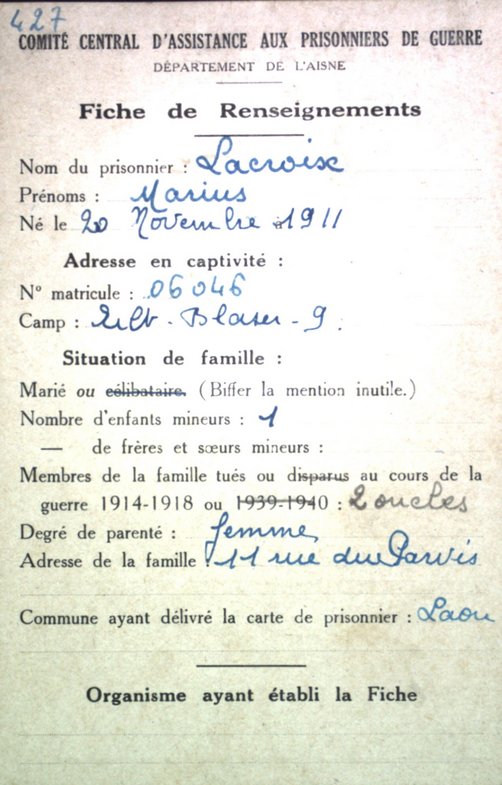 427
COMITÉ CENTRAL D'ASSISTANCE AUX PRISONNIERS DE GUERRE
DÉPARTEMENT DE L'AISNE
Fiche de Renseignements
Nom du prisonnier : Lacroix
Prénoms : Marius
Né le 20 Novembre à 1911
Adresse en captivité :
N° matricule : 06046
Camp : Blaser - 9.
Situation de famille :
Marié ou célibataire. (Biffer la mention inutile.)
Nombre d'enfants mineurs : 1
— de frères et sœurs mineurs :
Membres de la famille tués ou disparus au cours de la
guerre 1914-1918 ou 1939-1940 : 2 oncles
Degré de parenté : femme
Adresse de la famille : 11 rue du Parvis
Commune ayant délivré la carte de prisonnier : Laon
Organisme ayant établi la Fiche